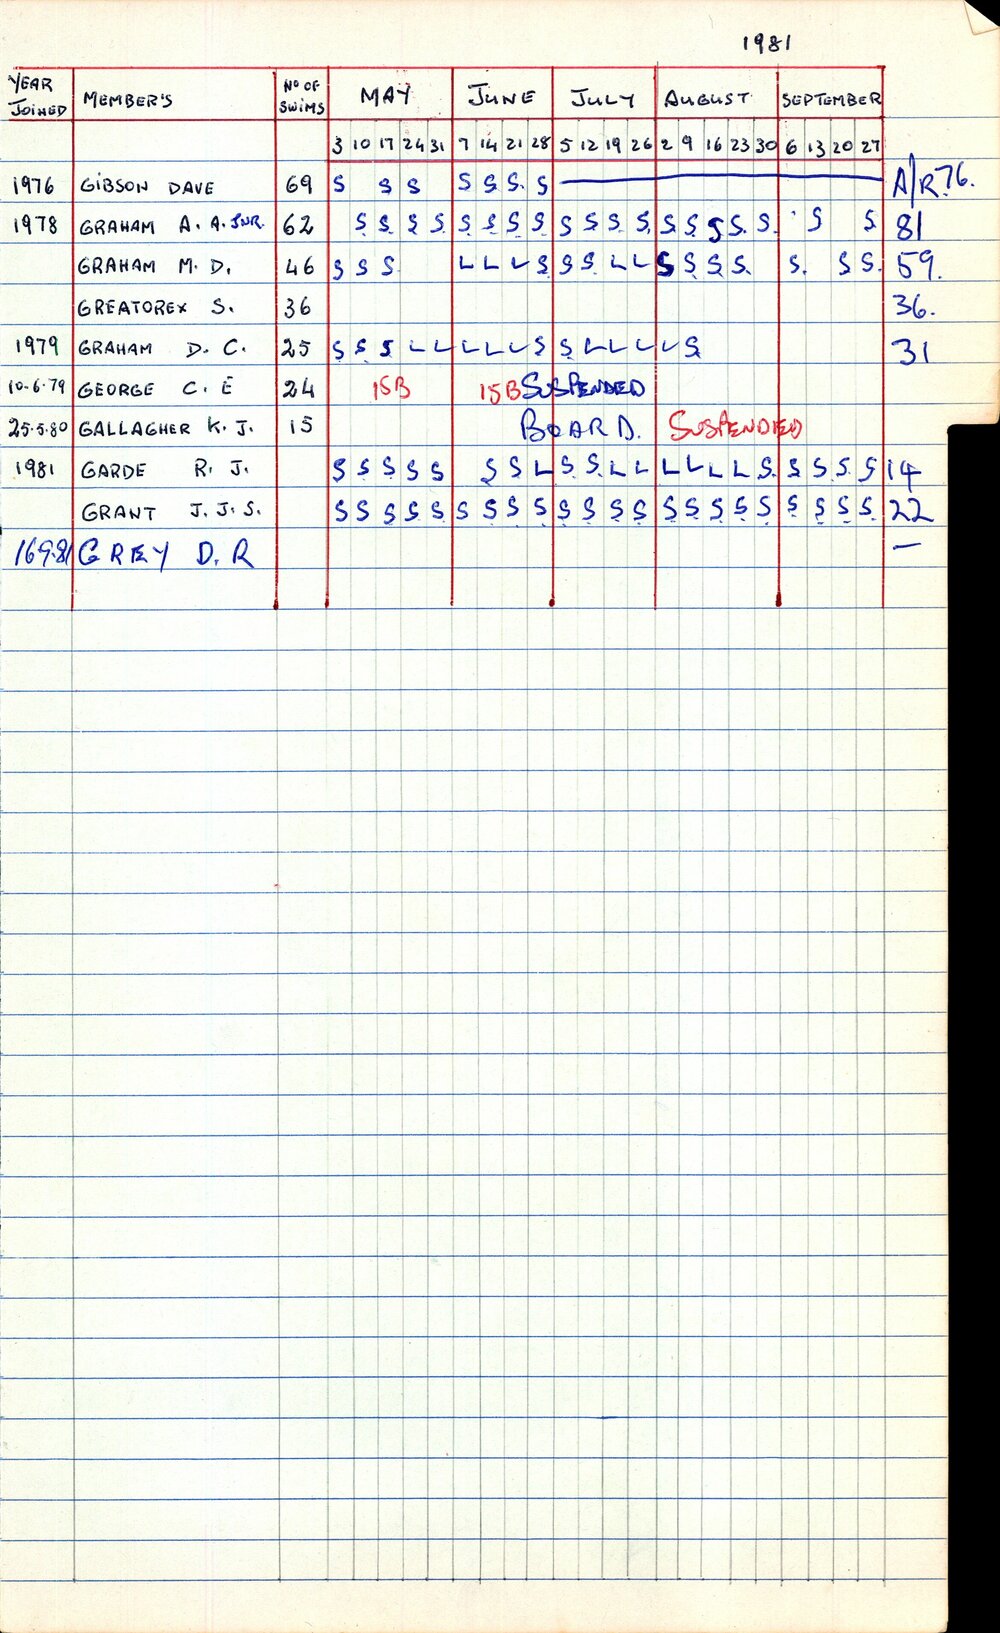 1981
YEAR JOINED MEMBER'S Nº OF SWIMS MAY JUNE JULY AUGUST SEPTEMBER
3 10 17 24 31 7 14 21 28 5 12 19 26 2 9 16 23 30 6 13 20 27
1976 GIBSON DAVE 69 S S S S S S S A/R 76.
1978 GRAHAM A. A. JNR. 62 S S S S S S S S S S S S S S S S S S S 81
GRAHAM M. D. 46 S S S L L L S S S L L S S S S S. S S 59.
GREATOREX S. 36 36.
1979 GRAHAM D. C. 25 S S S L L L L L S S L L L L S 31
10-6-79 GEORGE C. E 24 15B 15B SUSPENDED
25.5.80 GALLAGHER K. J. 15 BOARD. SUSPENDED
1981 GARDE R. J. S S S S S S S L S S L L L L L L S S S S S 14
GRANT J. J. S. S S S S S S S S S S S S S S S S S S S S S S 22
16.9.81 GREY D. R —